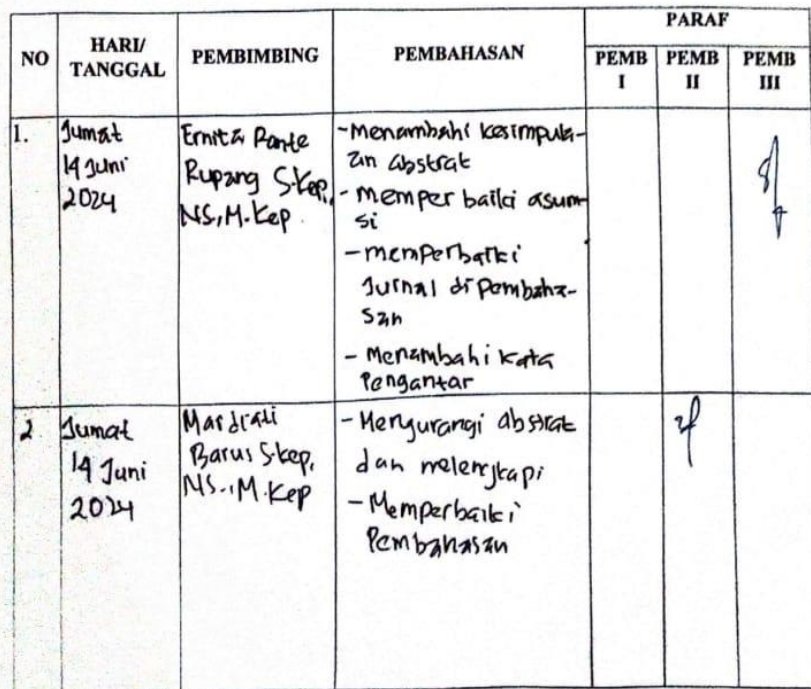 NO
HARI/
TANGGAL
PEMBIMBING
PEMBAHASAN
PARAF
PEMB
I
PEMB
II
PEMB
III
1.
Jumat
14 Juni
2024
Ernita Rante
Rupang S.Kep,
NS., M.Kep
- Menambahi kesimpula-
an abstrat
- memperbaiki asum
si
- memperbaiki
Jurnal dipembaha-
san
- Menambahi kata
Pengantar
2
Jumat
14 Juni
2024
Mardiati
Barus S.kep,
NS.., M.Kep
- Mengurangi abstrat
dan melengkapi
- Memperbaiki
Pembahasan